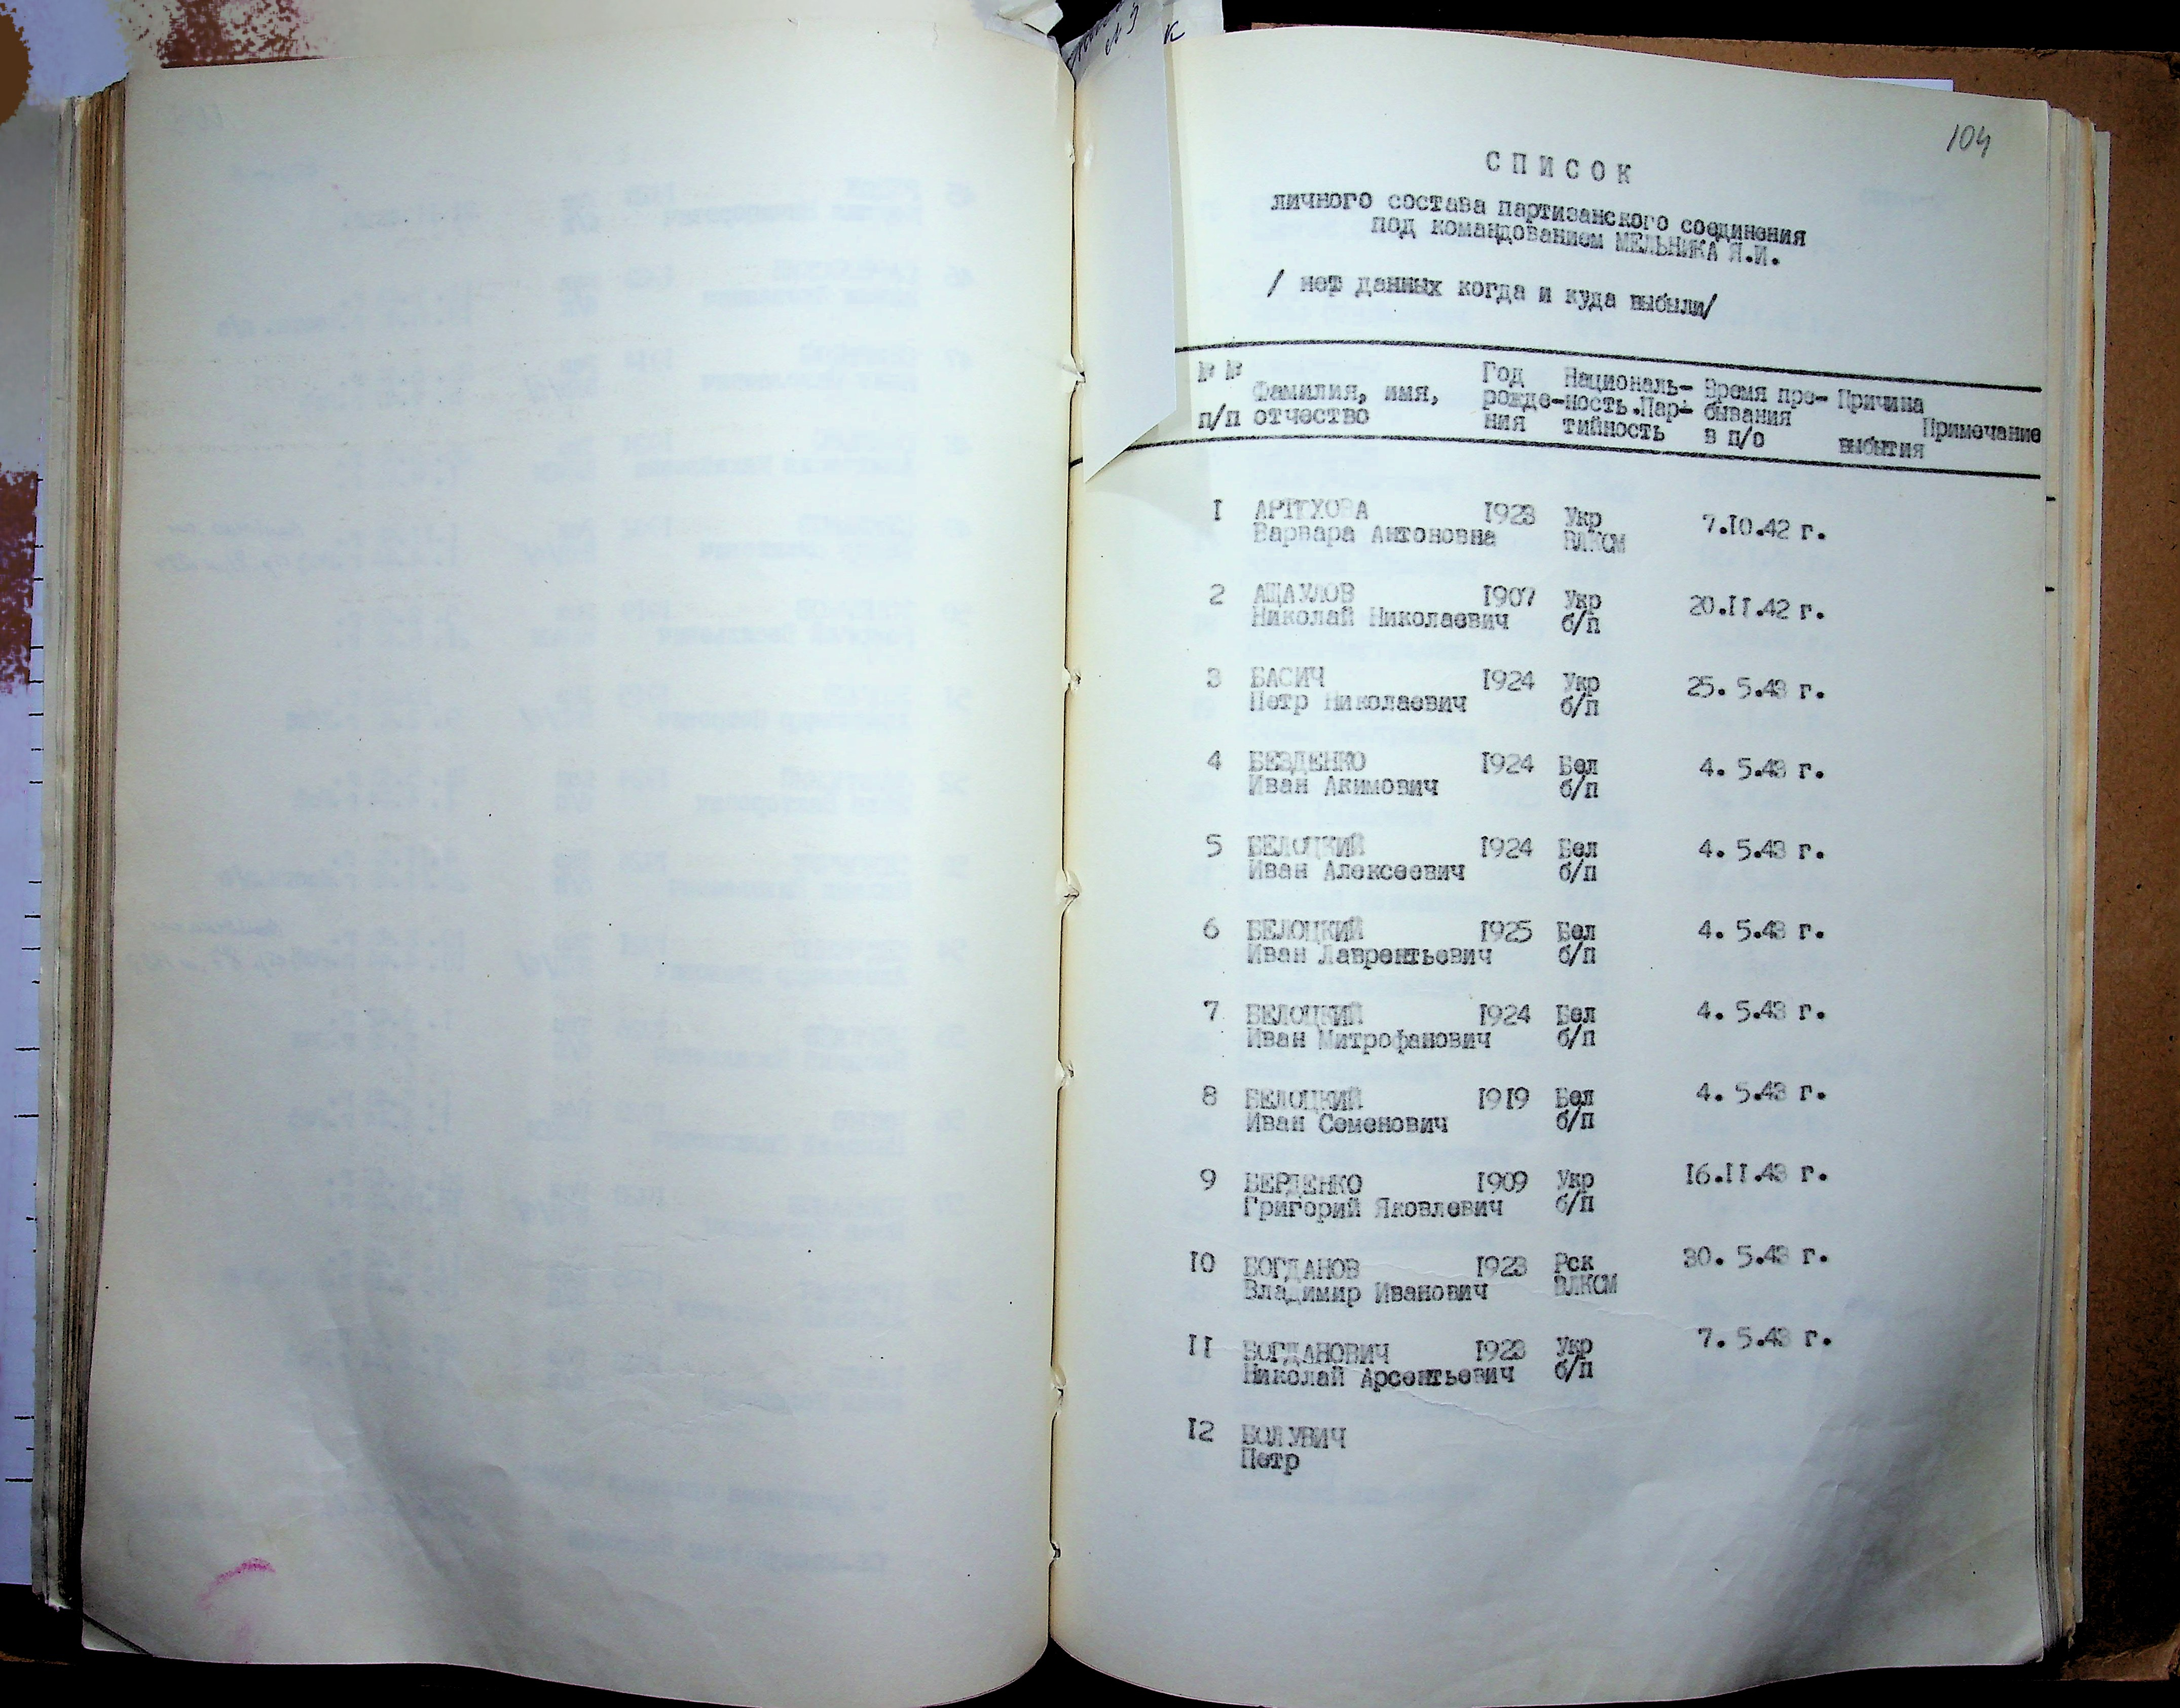 104
СПИСОК
личного состава партизанского соединения
под командованием МЕЛЬНИКА Я.И.
/ нет данных когда и куда выбыли/
№ № Фамилия, имя, Год Националь- Время пре- Причина
рожде- ность.Пар- бывания Примечание
п/п отчество ния тийность в п/о выбытия
1 АРТЮХОВА 1923 Укр 7.10.42 г.
Варвара Антоновна ВЛКСМ
2 АЩАУЛОВ 1907 Укр 20.11.42 г.
Николай Николаевич б/п
3 БАСИЧ 1924 Укр 25. 5.43 г.
Петр Николаевич б/п
4 БЕЗДЕНКО 1924 Бел 4. 5.43 г.
Иван Акимович б/п
5 БЕЛОЦКИЙ 1924 Бел 4. 5.43 г.
Иван Алексеевич б/п
6 БЕЛОЦКИЙ 1925 Бел 4. 5.43 г.
Иван Лаврентьевич б/п
7 БЕЛОЦКИЙ 1924 Бел 4. 5.43 г.
Иван Митрофанович б/п
8 БЕЛОЦКИЙ 1919 Бел 4. 5.43 г.
Иван Семенович б/п
9 БЕРДЕНКО 1909 Укр 16.11.43 г.
Григорий Яковлевич б/п
10 БОГДАНОВ 1923 Рск 30. 5.43 г.
Владимир Иванович ВЛКСМ
11 БОГДАНОВИЧ 1923 Укр 7. 5.43 г.
Николай Арсентьевич б/п
12 БОЛУВИЧ
Петр